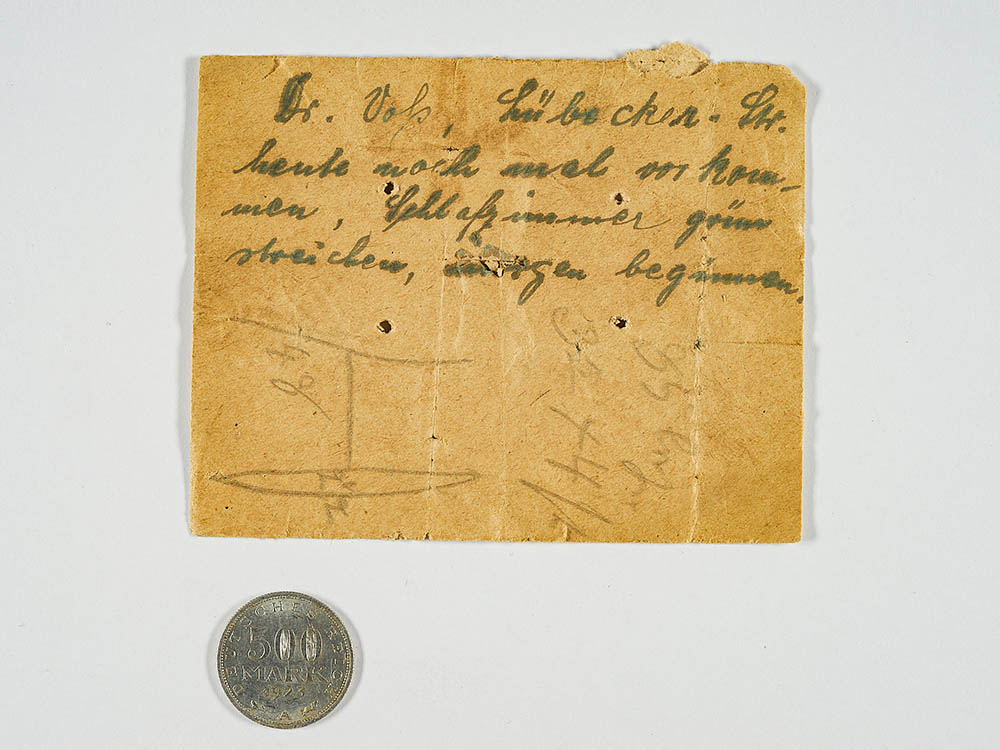 Dr. Voß, Lübecker-Str.
heute noch mal vorkom-
men, Schlafzimmer grün
streichen, morgen beginnen.
DEUTSCHES REICH
500
MARK
1923
A